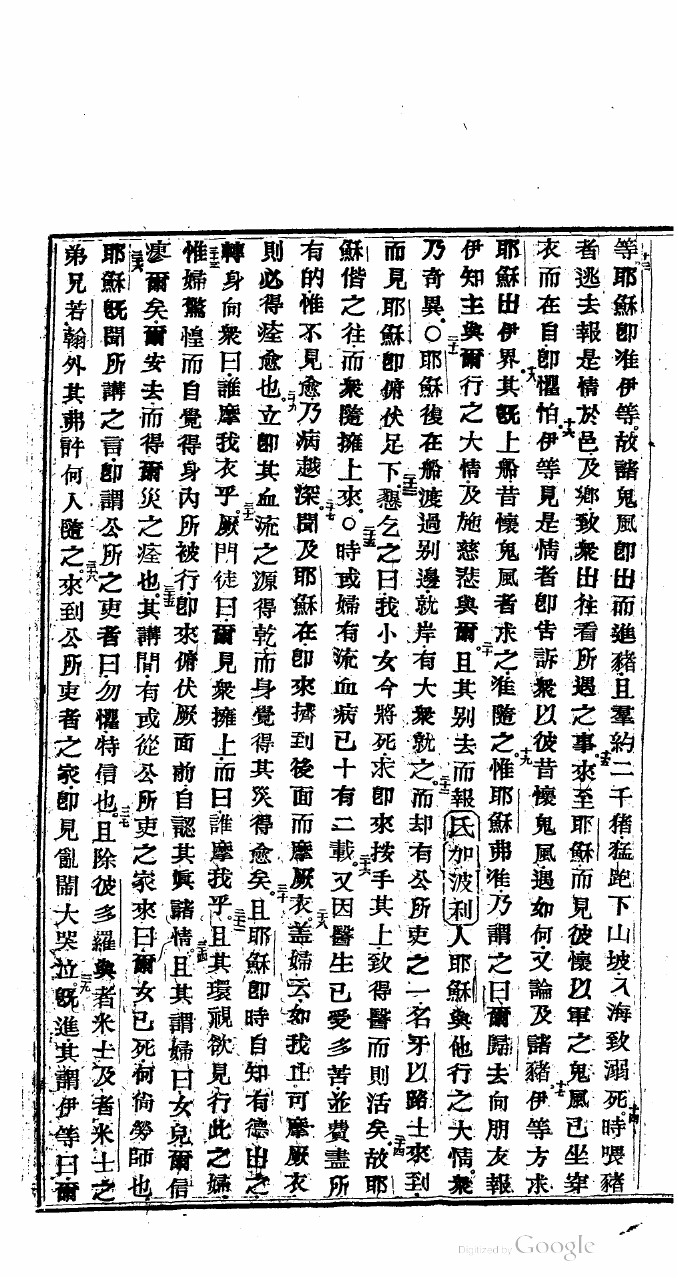 等耶穌即准伊等。故諸鬼風即出而進豬。且羣約二千猪。猛跑下山坡入海致溺死。時喂豬
者逃去報是情於邑及鄉。致衆出往看所遇之事。來至耶穌。而見彼懷以軍之鬼風已坐穿
衣而在自。即懼怕。伊等見是情者。即告訴衆以彼昔懷鬼風遇如何。又論及諸豬。伊等方求
耶穌出伊界。其既上船。昔懷鬼風者求之准隨之。惟耶穌弗准。乃謂之曰。爾歸去向朋友報
伊知主與爾行之大情。及施慈悲與爾。且其别去。而報氐加波利人耶穌與他行之大情。衆
乃奇異。○耶穌復在船渡過别邊。就岸有大衆就之。而却有公所吏之一。名牙以路士來到。
而見耶穌。即俯伏足下。懇乞之曰。我小女今將死。求即來按手其上。致得醫而則活矣。故耶
穌偕之往。而衆隨擁上來。○時或婦有流血病已十有二載。又因醫生已受多苦。並費盡所
有的。惟不見愈。乃病越深。聞及耶穌在。即來擠到後面。而摩厥衣。蓋婦云。如我止可摩厥衣
則必得痊愈也。立即其血流之源得乾。而身覺得其災得愈矣。且耶穌即時自知有德出之。
轉身向衆曰。誰摩我衣乎。厥門徒曰。爾見衆擁上。而曰誰摩我乎。且其環視欲見行此之婦。
惟婦驚惶而自覺得身內所被行。即來俯伏厥面前。自認其眞諸情。且其謂婦曰。女兒爾信
瘳爾矣。爾安去而得爾災之痊也。其講間。有或從公所吏之家來曰。爾女已死。何尚勞師也
耶穌既聞所講之言。即謂公所之吏者曰。勿懼。特信也。且除彼多羅與者米士及者米士之
弟兄若翰外。其弗許何人隨之。來到公所吏者之家。即見亂鬧大哭泣。既進其謂伊等曰。爾
十三
十四
十五
十六
十七
十八
十九
二十
二十一
二十二
二十三
二十四
二十五
二十六
二十七
二十八
二十九
三十
三十一
三十二
三十三
三十四
三十五
三十六
三十七
三十八
三十九
Digitized by Google